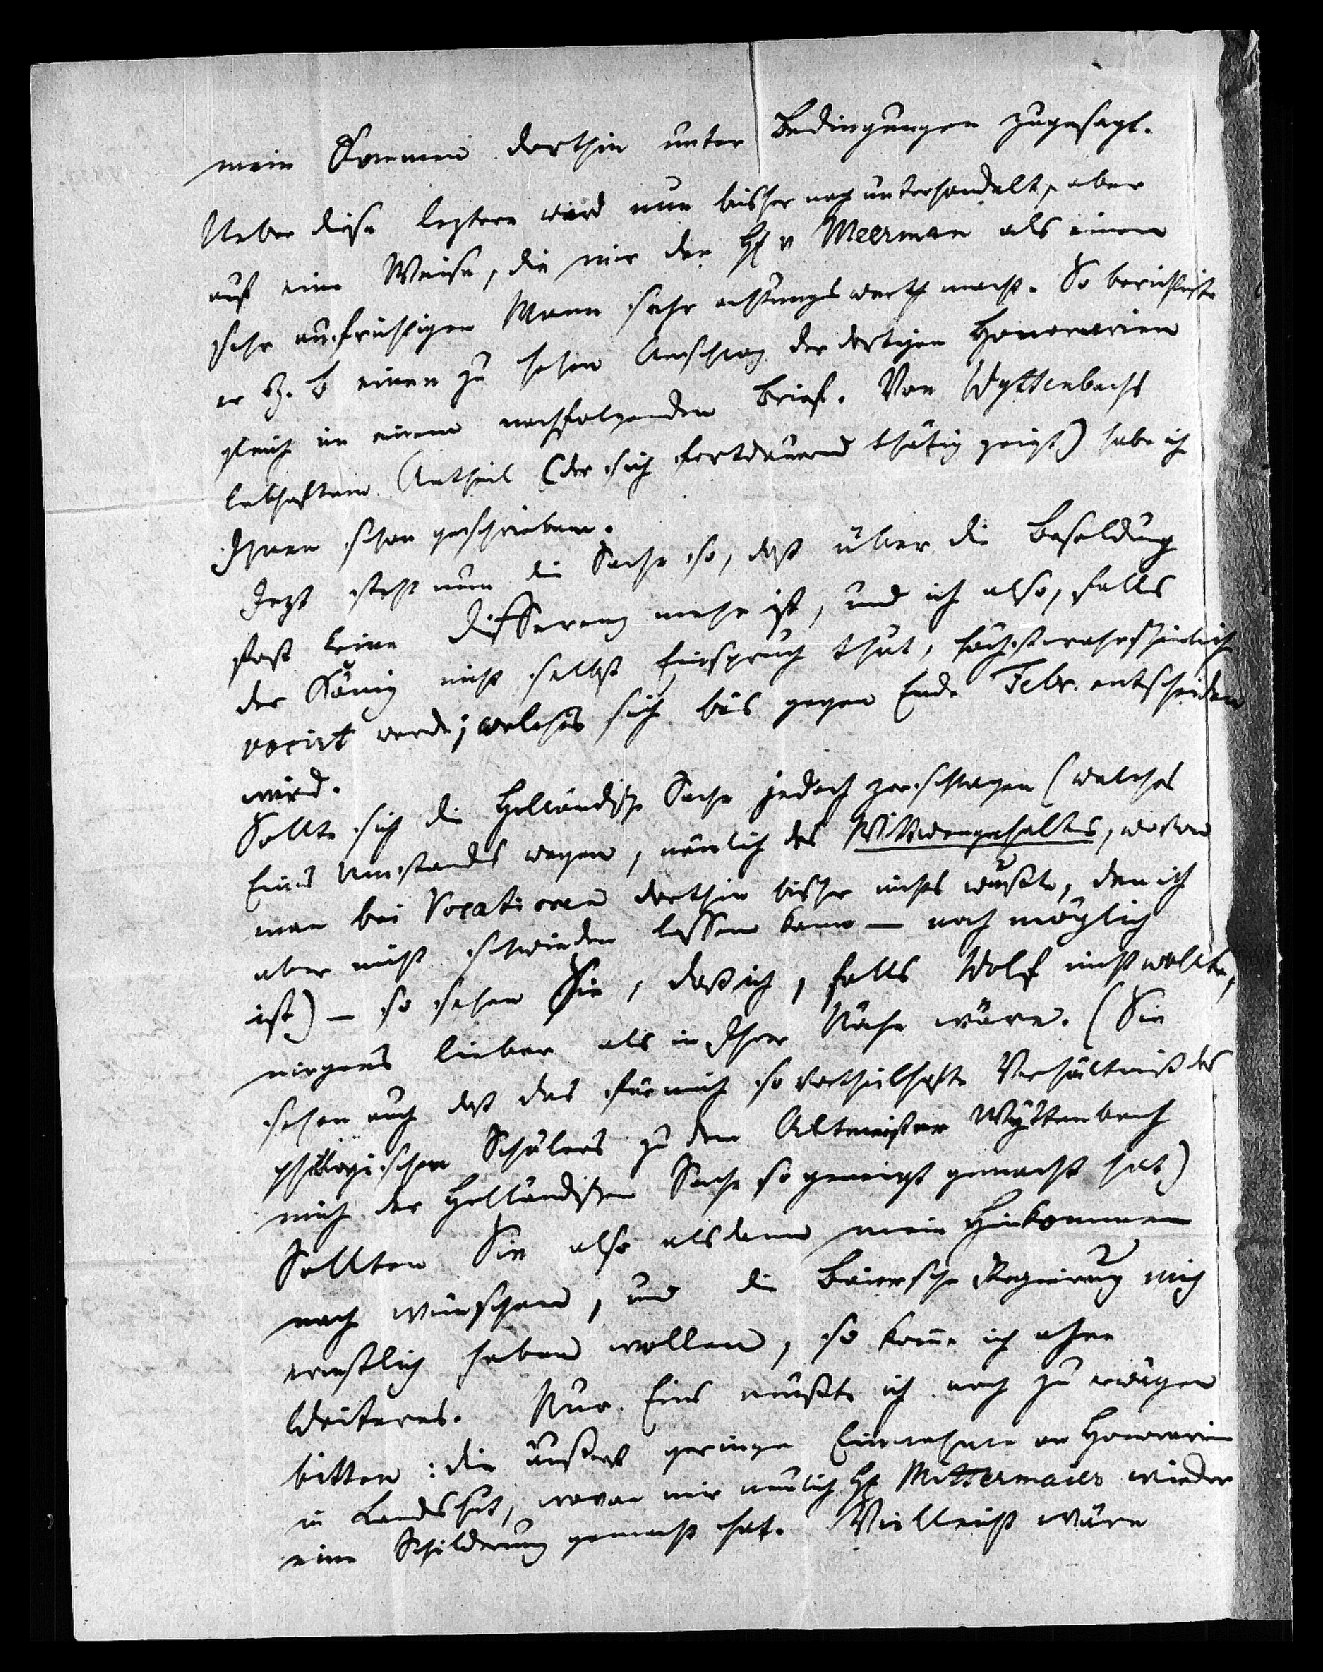 mein Kommen dorthin unter Bedingungen zugesagt.
Ueber diese leztern wird nun bisher noch unterhandelt, aber
auf eine Weise, die mir den Hf v Meerman als einen
sehr aufrichtigen Mann sehr achtungswerth macht. So berichtigte
er z. B einen zu hohen Anschlag der dortigen Honorarien
gleich in einem nachfolgenden Brief. Von Wyttenbachs
lebhaftem Antheil (der sich fortdauernd thätig zeigt) habe ich
Ihnen schon geschrieben.
Jezt steht nun die Sache so, daß über die Besoldung
fast keine Differenz mehr ist, und ich also, falls
der König nicht selbst Einspruch thut, höchstwahrscheinlich
vocirt werde; welches sich bis gegen Ende Febr. entscheiden
wird.
Sollte sich die Holländische Sache jedoch zerschlagen (welches
Eines Umstands wegen, nämlich des Wittwengehaltes, wovon
man bei Vocationen dorthin bisher nichts wußte, den ich
aber nicht schwinden lassen kann — noch möglich
ist) — so sehen Sie, daß ich, falls Wolf nicht wollte,
nirgens lieber als in Ihrer Nähe wäre. (Sie
sehen auch daß das für mich so vortheilhafte Verhältniß des
philologischen Schülers zu dem Altmeister Wyttenbach
mich der Holländischen Sache so geneigt gemacht hat)
Sollten Sie also alsdann mein Hinkommen
noch wünschen, und die Baiersche Regierung mich
ernstlich haben wollen, so komme ich ohne
Weiteres. Nur Eins müßte ich noch zu erwägen
bitten: die äußerst geringe Einnahme an Honorarien
in Landshut, wovon mir neulich Hf Mittermaier wieder
eine Schilderung gemacht hat. Vielleicht wäre